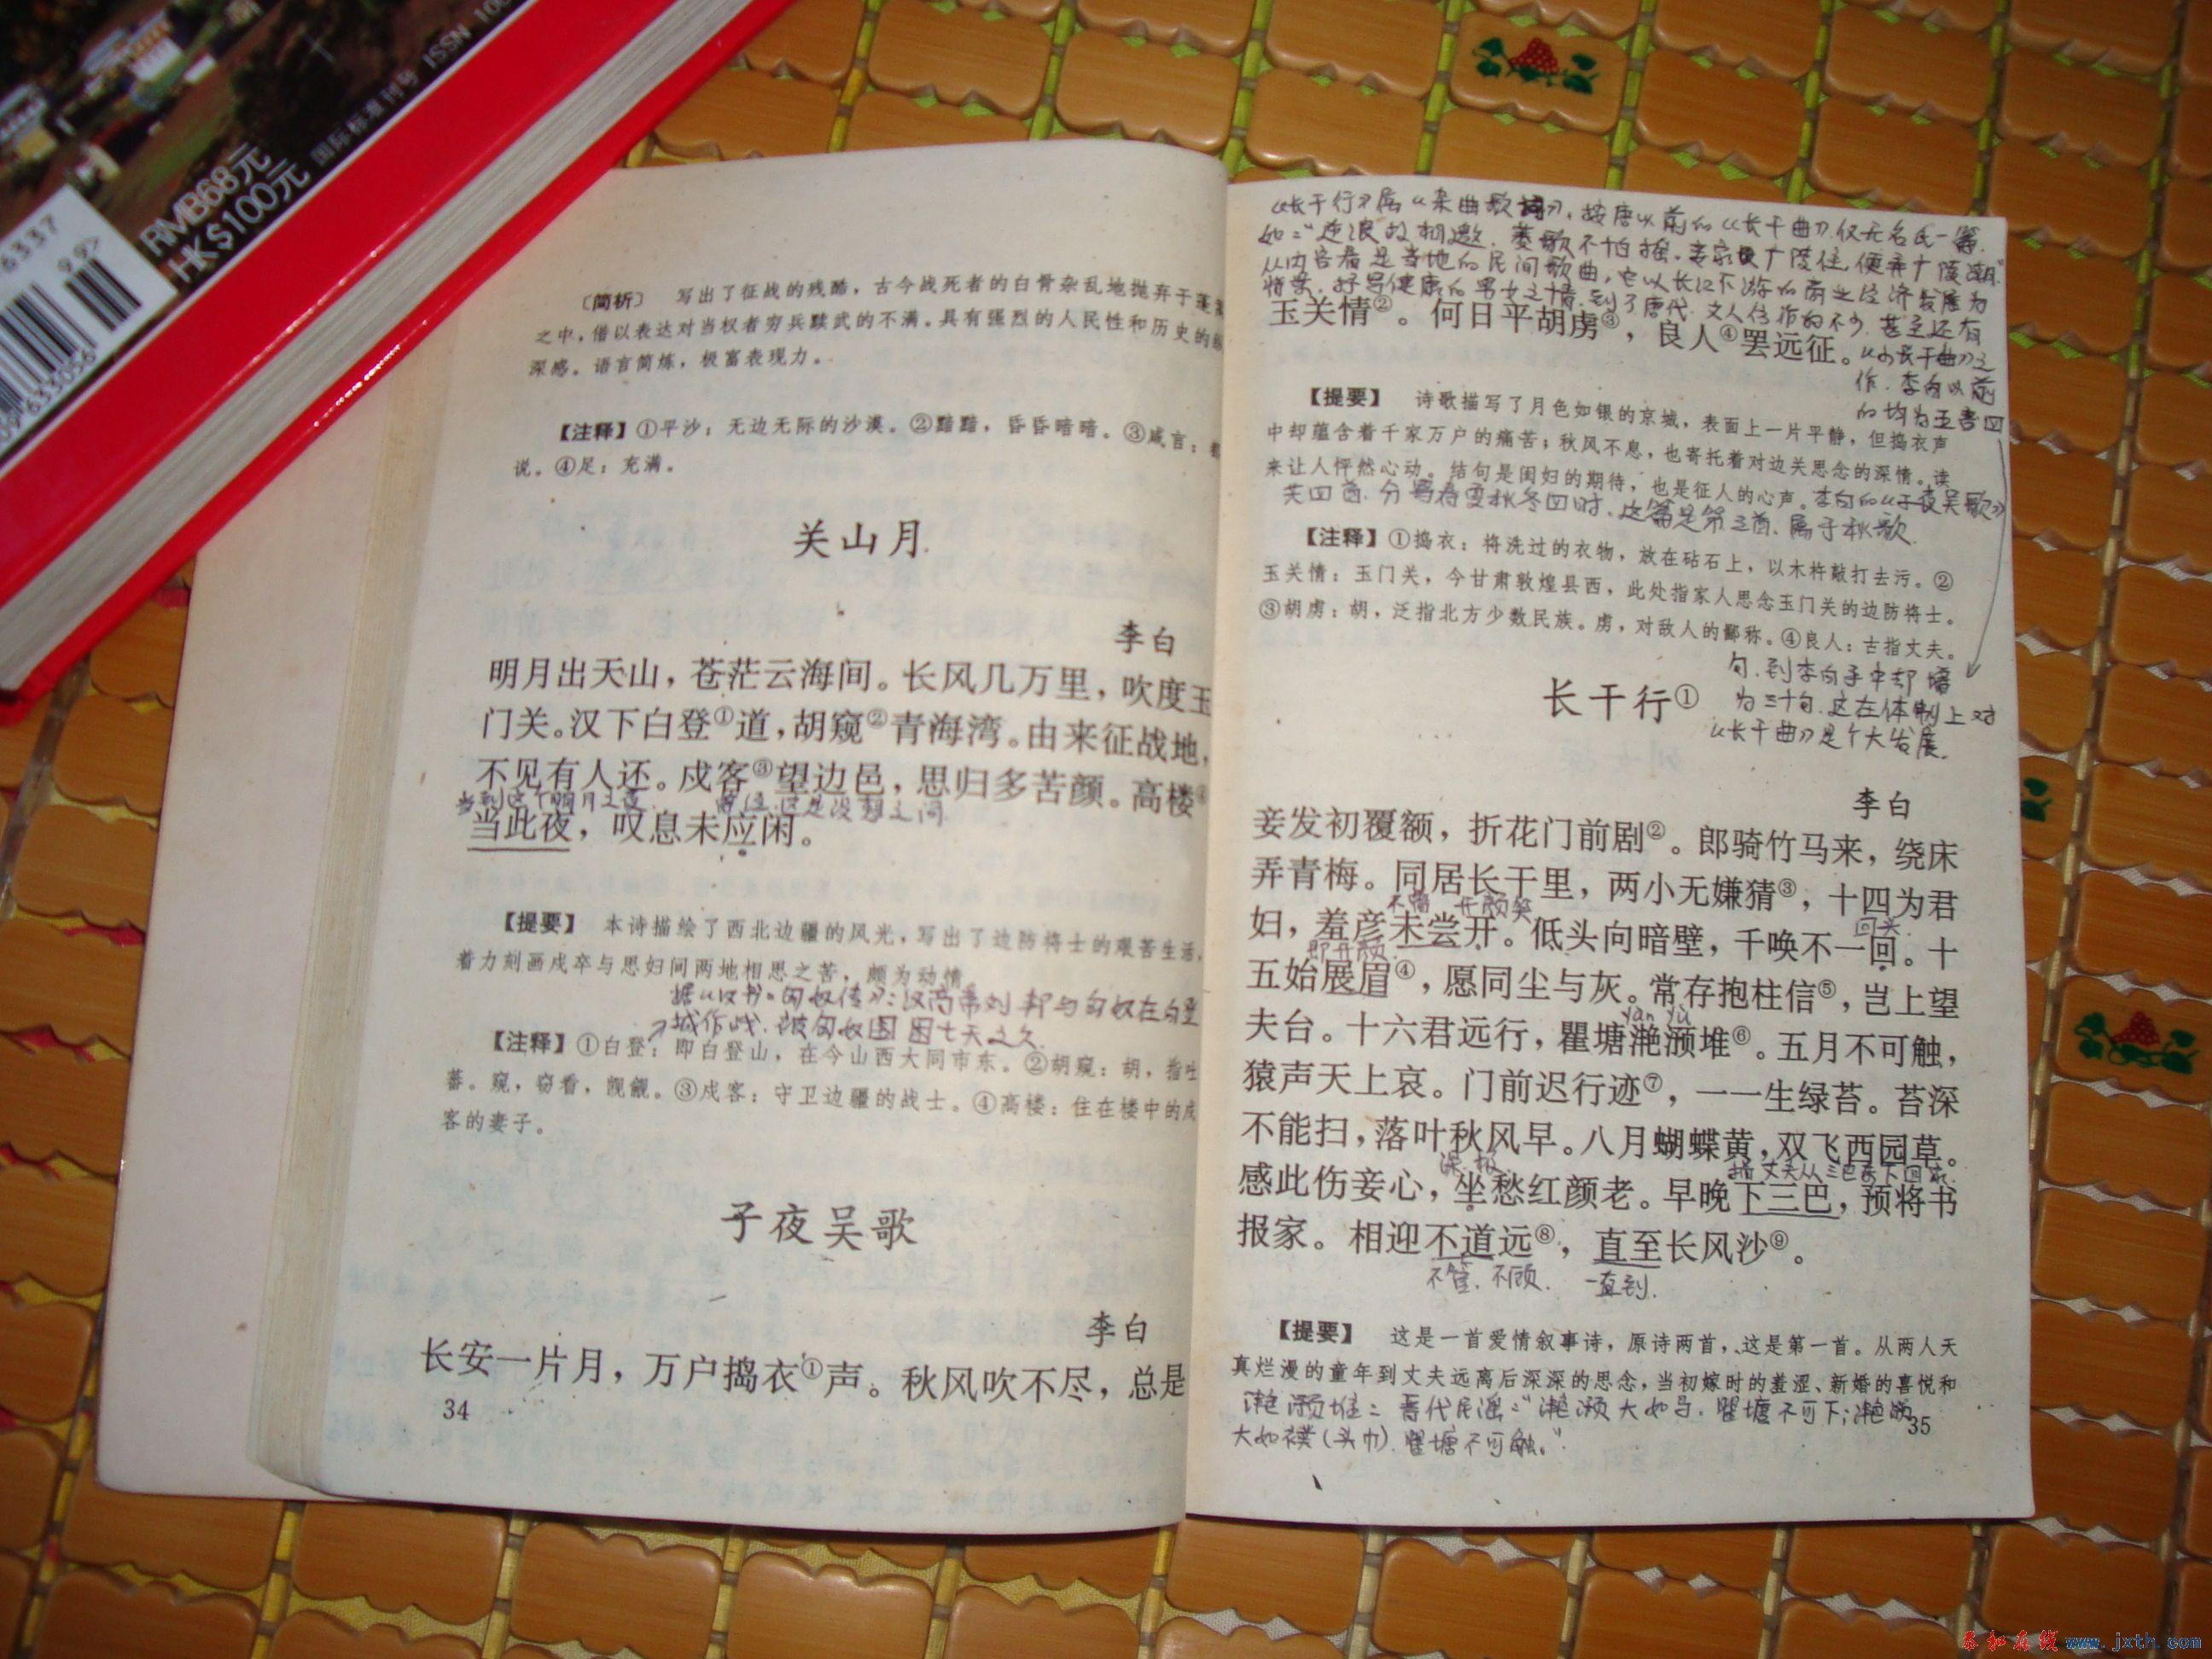 国际标准刊号 ISSN
RMB68元
HK$100元
6337
99>
〔简析〕 写出了征战的残酷，古今战死者的白骨杂乱地抛弃于蓬
之中，借以表达对当权者穷兵黩武的不满。具有强烈的人民性和历史的
深感。语言简炼，极富表现力。
【注释】①平沙：无边无际的沙漠。②黯黯，昏昏暗暗。③咸言：都
说。④足：充满。
关山月
李白
明月出天山，苍茫云海间。长风几万里，吹度玉
门关。汉下白登①道，胡窥②青海湾。由来征战地，
不见有人还。戍客③望边邑，思归多苦颜。高楼④
当到这个明月之夜
当此夜，叹息未应闲。
【提要】 本诗描绘了西北边疆的风光，写出了边防将士的艰苦生活，
着力刻画戍卒与思妇间两地相思之苦，颇为动情。
据《汉书·匈奴传》：汉高帝刘邦与匈奴在白登
城作战，被匈奴围困七天之久
【注释】①白登：即白登山，在今山西大同市东。②胡窥：胡，指吐
蕃。窥，窃看，觊觎。③戍客：守卫边疆的战士。④高楼：住在楼中的戍
客的妻子。
子夜吴歌
李白
长安一片月，万户捣衣①声。秋风吹不尽，总是
34
《长干行》属《杂曲歌词》，按唐以前的《长干曲》仅无名氏一篇，
如：“逆浪故相邀，菱歌不怕摇，妾家住广陵住，便弄广陵潮”
从内容看是当地的民间歌曲，它以长江下游的商业经济发展为
背景，抒写健康的男女之情，到了唐代，文人仿作的不少，甚至还有
玉关情②。何日平胡虏③，良人④罢远征。
《小长干曲》之
作，李白以前
的均为五言四
【提要】 诗歌描写了月色如银的京城，表面上一片平静，但捣衣声
中却蕴含着千家万户的痛苦；秋风不息，也寄托着对边关思念的深情。读
来让人怦然心动。结句是闺妇的期待，也是征人的心声。李白的《子夜吴歌》
共四首，分写春夏秋冬四时，这篇是第三首，属于秋歌
【注释】①捣衣：将洗过的衣物，放在砧石上，以木杵敲打去污。②
玉关情：玉门关，今甘肃敦煌县西，此处指家人思念玉门关的边防将士。
③胡虏：胡，泛指北方少数民族。虏，对敌人的鄙称。④良人：古指丈夫。
句，到李白手中却增
为三十句，这在体制上对
《长干曲》是个大发展
长干行①
李白
妾发初覆额，折花门前剧②。郎骑竹马来，绕床
弄青梅。同居长干里，两小无嫌猜③，十四为君
不曾 开颜笑 回头
妇，羞彦未尝开。低头向暗壁，千唤不一回。十
即开颜
五始展眉④，愿同尘与灰。常存抱柱信⑤，岂上望
yàn yù
夫台。十六君远行，瞿塘滟滪堆⑥。五月不可触，
猿声天上哀。门前迟行迹⑦，一一生绿苔。苔深
不能扫，落叶秋风早。八月蝴蝶黄，双飞西园草。
深、极 指丈夫从三巴东下回来
感此伤妾心，坐愁红颜老。早晚下三巴，预将书
报家。相迎不道远⑧，直至长风沙⑨。
不管、不顾 一直到
【提要】 这是一首爱情叙事诗，原诗两首，这是第一首。从两人天
真烂漫的童年到丈夫远离后深深的思念，当初嫁时的羞涩、新婚的喜悦和
滟滪堆：晋代民谣：“滟滪大如马，瞿塘不可下；滟滪
大如襆(头巾)，瞿塘不可触。”
35
泰和在线 www.jxth.com